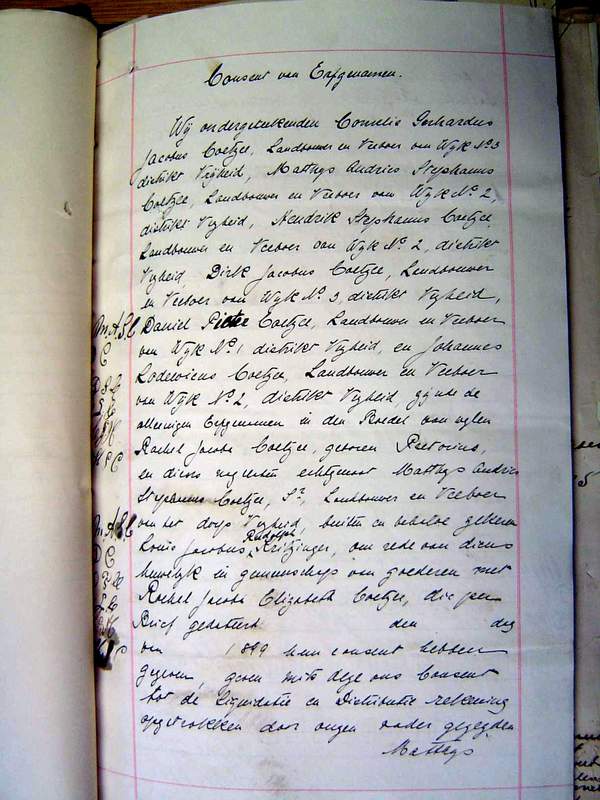 Consent van Erfgenamen.
Wij ondergeteekenden Cornelis Gerhardus
Jacobus Coetzee, Landbouwer en Veeboer van Wijk No 3
distrikt Vrijheid, Matthys Andries Stephanus
Coetzee, Landbouwer en Veeboer van Wijk No. 2,
distrikt Vrijheid, Hendrik Stephanus Coetzee
Landbouwer en Veeboer van Wijk No. 2, distrikt
Vrijheid, Dirk Jacobus Coetzee, Landbouwer
en Veeboer van Wijk No. 3, distrikt Vrijheid,
M.A.S.C Daniel Pieter Coetzee, Landbouwer en Veeboer
van Wijk No. 1 distrikt Vrijheid, en Johannes
Lodewicus Coetzee, Landbouwer en Veeboer
van Wijk No. 2, distrikt Vrijheid, zijnde de
alleenige Erfgenamen in den Boedel van wylen
Rachel Jacoba Coetzee, geboren Pretorius,
en diens nagelaten echtgenoot Matthys Andries
Stephanus Coetzee, Sr., Landbouwer en Veeboer
M.A.S.C van het dorp Vrijheid, buiten en behalve gekomen
Louis Jacobus Rudolph Kritzinger, om rede van diens
huwelijk in gemeenschap van goederen met
Rachel Jacoba Elizabeth Coetzee, die per
Brief gedateerd den dag
van 1899 hun consent hebben
gegeven, geven mits deze ons Consent
tot de Liquidatie en Distributie rekening
opgetrokken door onzen vader gezegden
Matthys